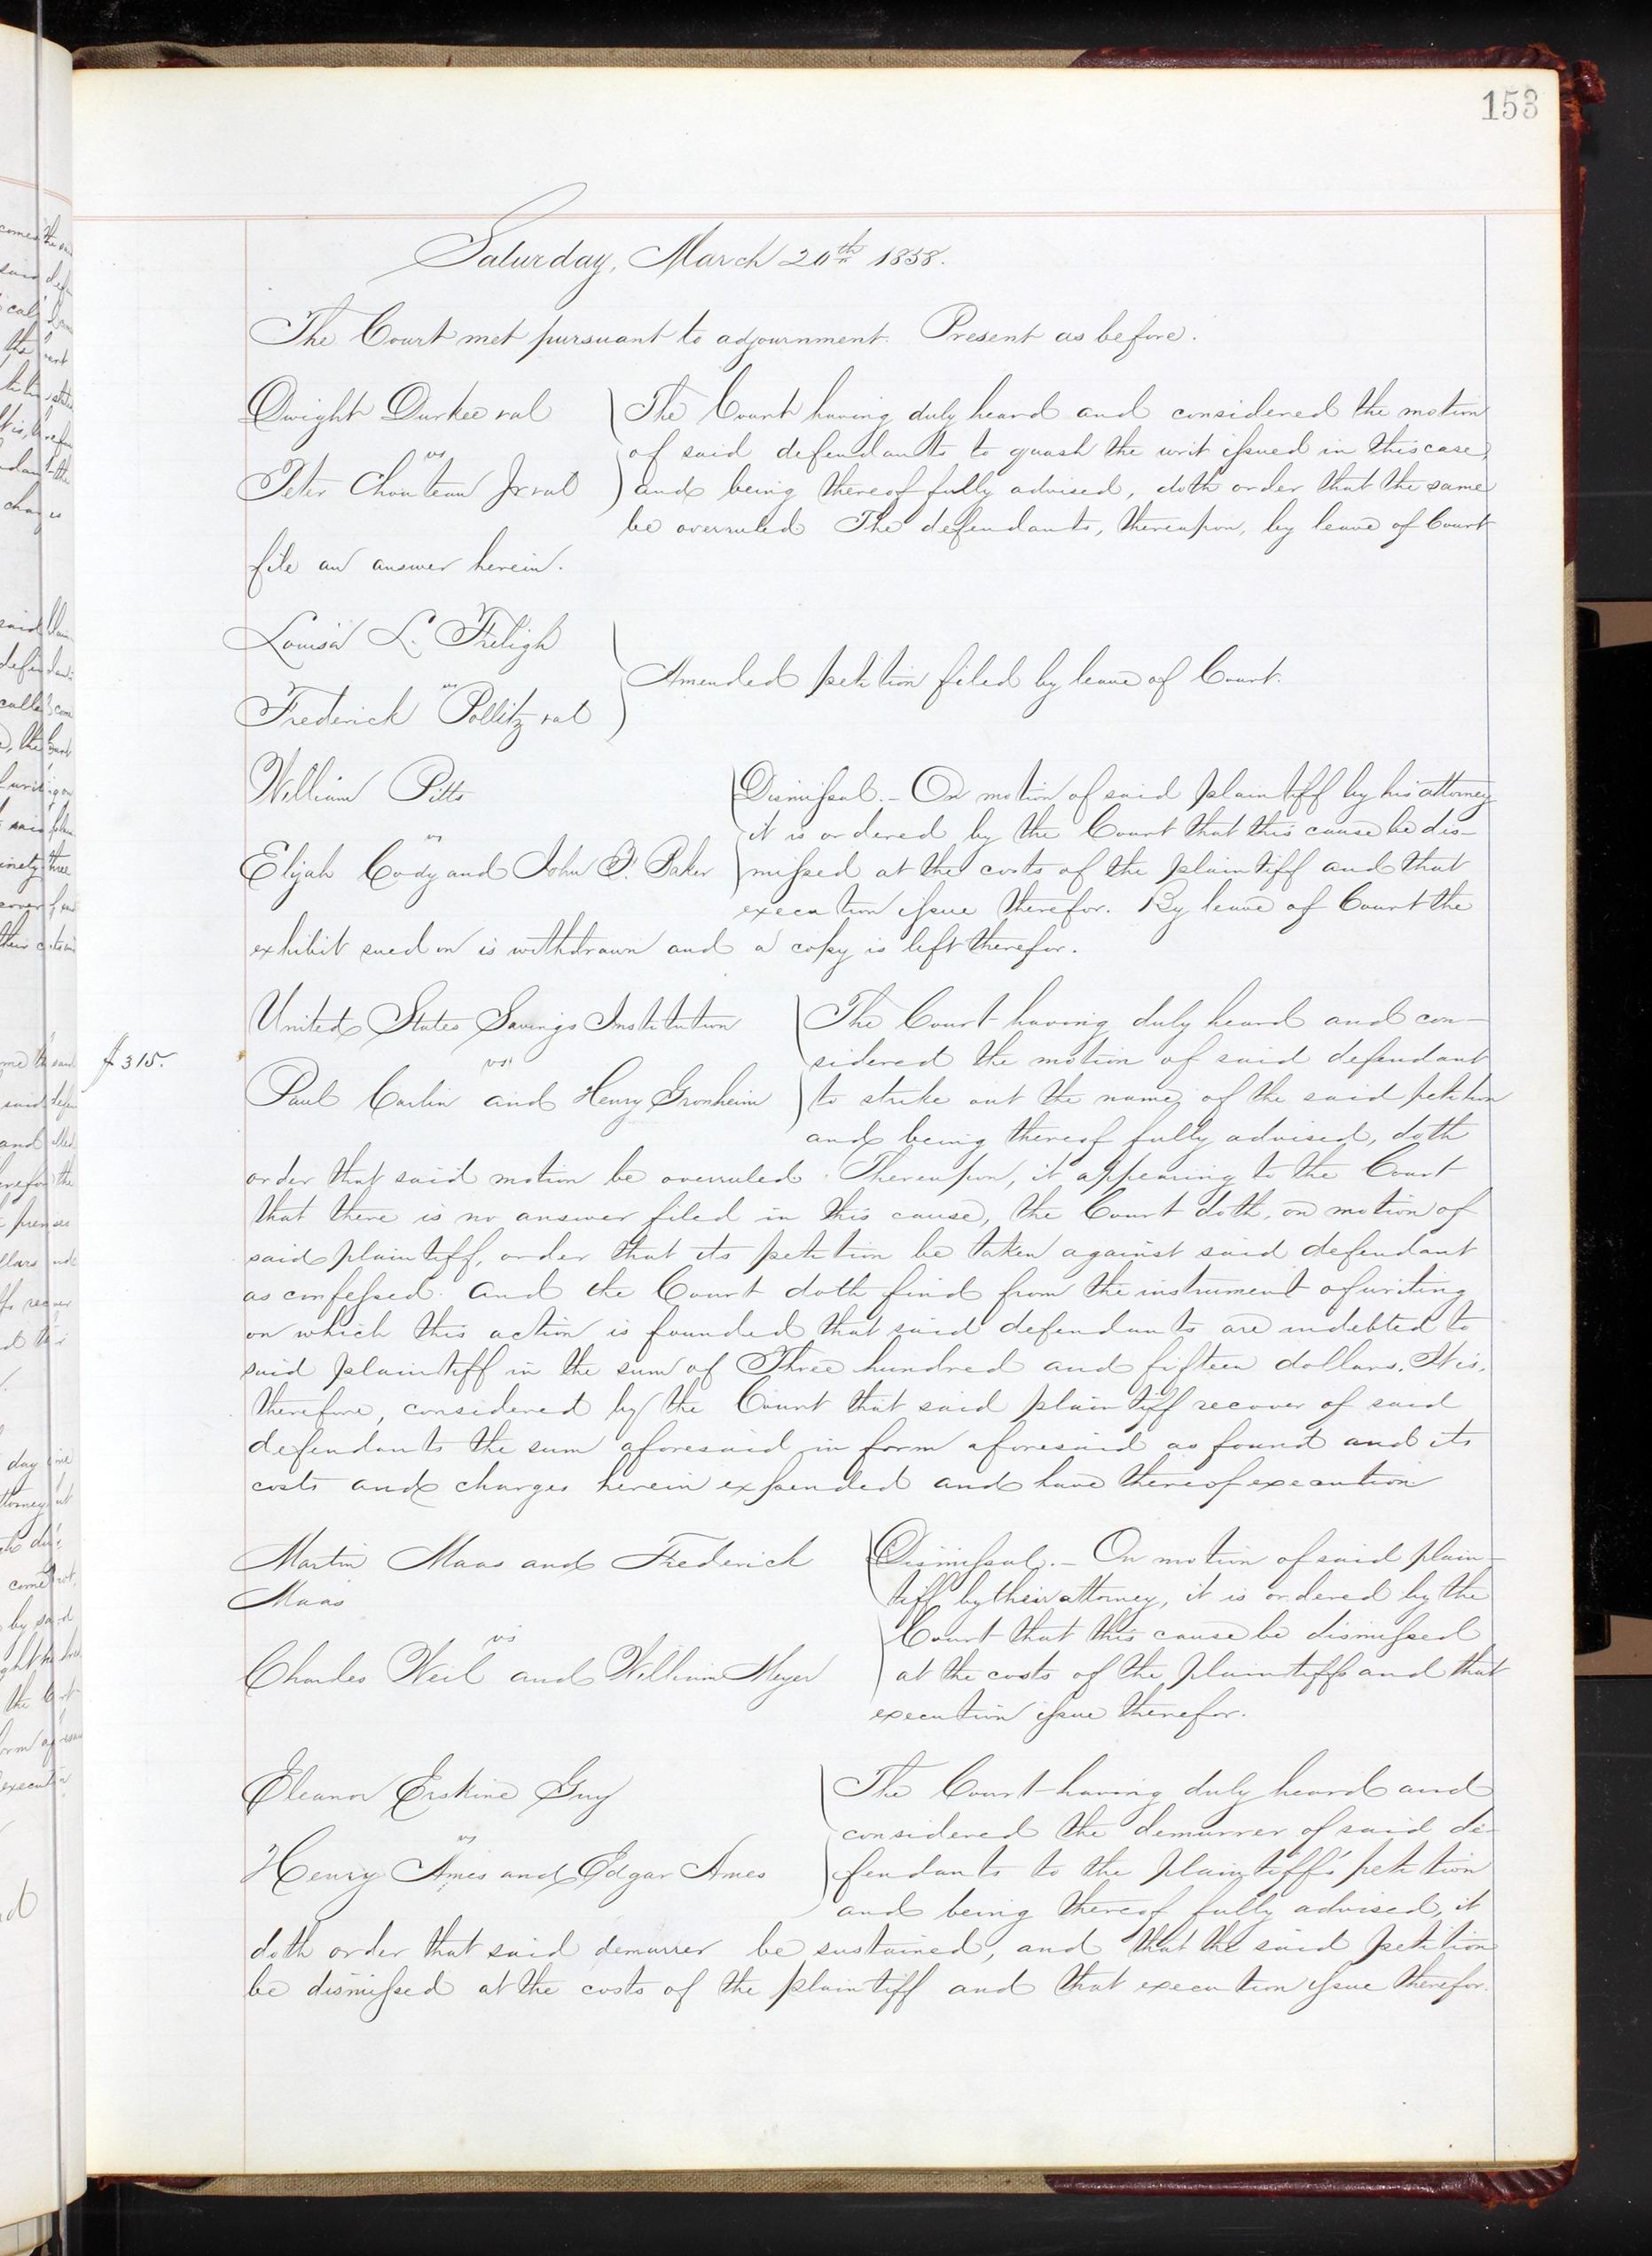 153
Saturday, March 20th 1858.
The Court met pursuant to adjournment. Present as before.
Dwight Durkee &al
vs
Peter Chouteau Jr &al
The Court having duly heard and considered the motion
of said defendants to quash the writ issued in this case,
and being thereof fully advised, doth order that the same
be overruled The defendants, thereupon, by leave of Court
file an answer herein.
Louisa L. Freligh
vs
Frederick Pollitz &al
Amended petition filed by leave of Court.
William Pitts
vs
Elijah Cody and John F. Baker
Dismissal. – On motion of said plaintiff by his attorney
it is ordered by the Court that this cause be dis-
missed at the costs of the plaintiff and that
execution issue therefor. By leave of Court the
exhibit sued on is withdrawn and a copy is left therefor.
$315.
United States Savings Institution
vs
Paul Carlin and Henry Gronheim
The Court having duly heard and con-
sidered the motion of said defendant
to strike out the name of the said petition
and being thereof fully advised, doth
order that said motion be overruled. Thereupon, it appearing to the Court
that there is no answer filed in this cause, the Court doth, on motion of
said plaintiff, order that its petition be taken against said defendant
as confessed. And the Court doth find from the instrument of writing
on which this action is founded that said defendants are indebted to
said plaintiff in the sum of Three hundred and fifteen dollars. It is,
therefore, considered by the Court that said plaintiff recover of said
defendants the sum aforesaid in form aforesaid as found and its
costs and charges herein expended and have thereof execution
Martin Maas and Frederick
Maas
vs
Charles Weil and William Meyer
Dismissal. – On motion of said plain-
tiff by their attorney, it is ordered by the
Court that this cause be dismissed
at the costs of the plaintiffs and that
execution issue therefor.
Eleanor Erskine Guy
vs
Henry Ames and Edgar Ames
The Court having duly heard and
considered the demurrer of said de-
fendants to the plaintiff's petition
and being thereof fully advised, it
doth order that said demurrer be sustained, and that the said petition
be dismissed at the costs of the plaintiff and that execution issue therefor.